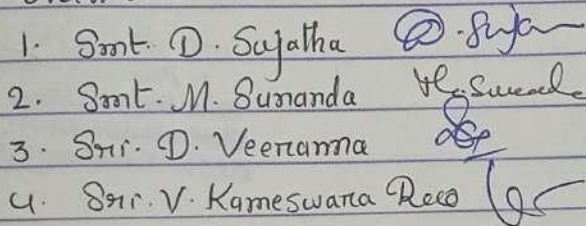 1. Smt. D. Sujatha D. Suja
2. Smt. M. Sunanda
3. Sri. D. Veeranna
4. Sri. V. Kameswara Rao